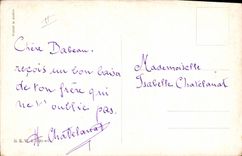 Chère Dabeau
reçois un bon baiser
de ton frère qui
ne t'oublie pas.
H. Chatelanat
Mademoiselle
Isabelle Chatelanat